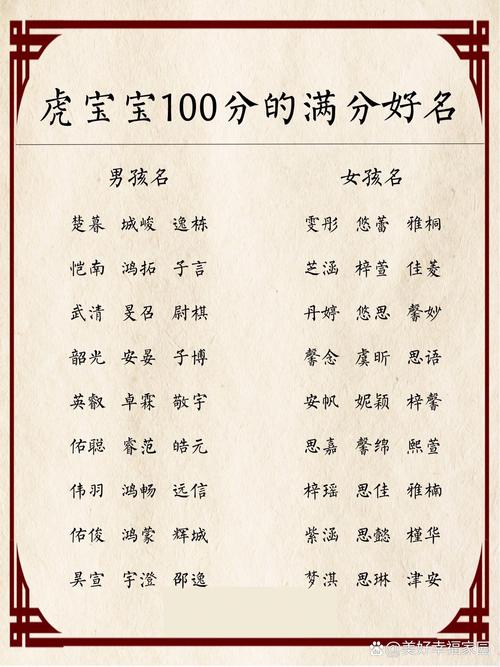 虎宝宝100分的满分好名
男孩名
楚暮 城峻 逸栋
恺南 鸿拓 子言
武清 旻召 尉棋
韶光 安晏 子博
英叡 卓霖 敬宇
佑聪 睿范 皓元
伟羽 鸿畅 远信
佑俊 鸿蒙 辉城
昊宣 宇澄 邵逸
女孩名
雯彤 悠蕾 雅桐
芝涵 梓萱 佳菱
丹婷 悠思 馨妙
馨念 虞昕 思语
安帆 妮颖 梓馨
思嘉 馨绵 熙萱
梓瑶 思佳 雅楠
紫涵 思懿 槿华
梦淇 思琳 津安
美好幸福家园